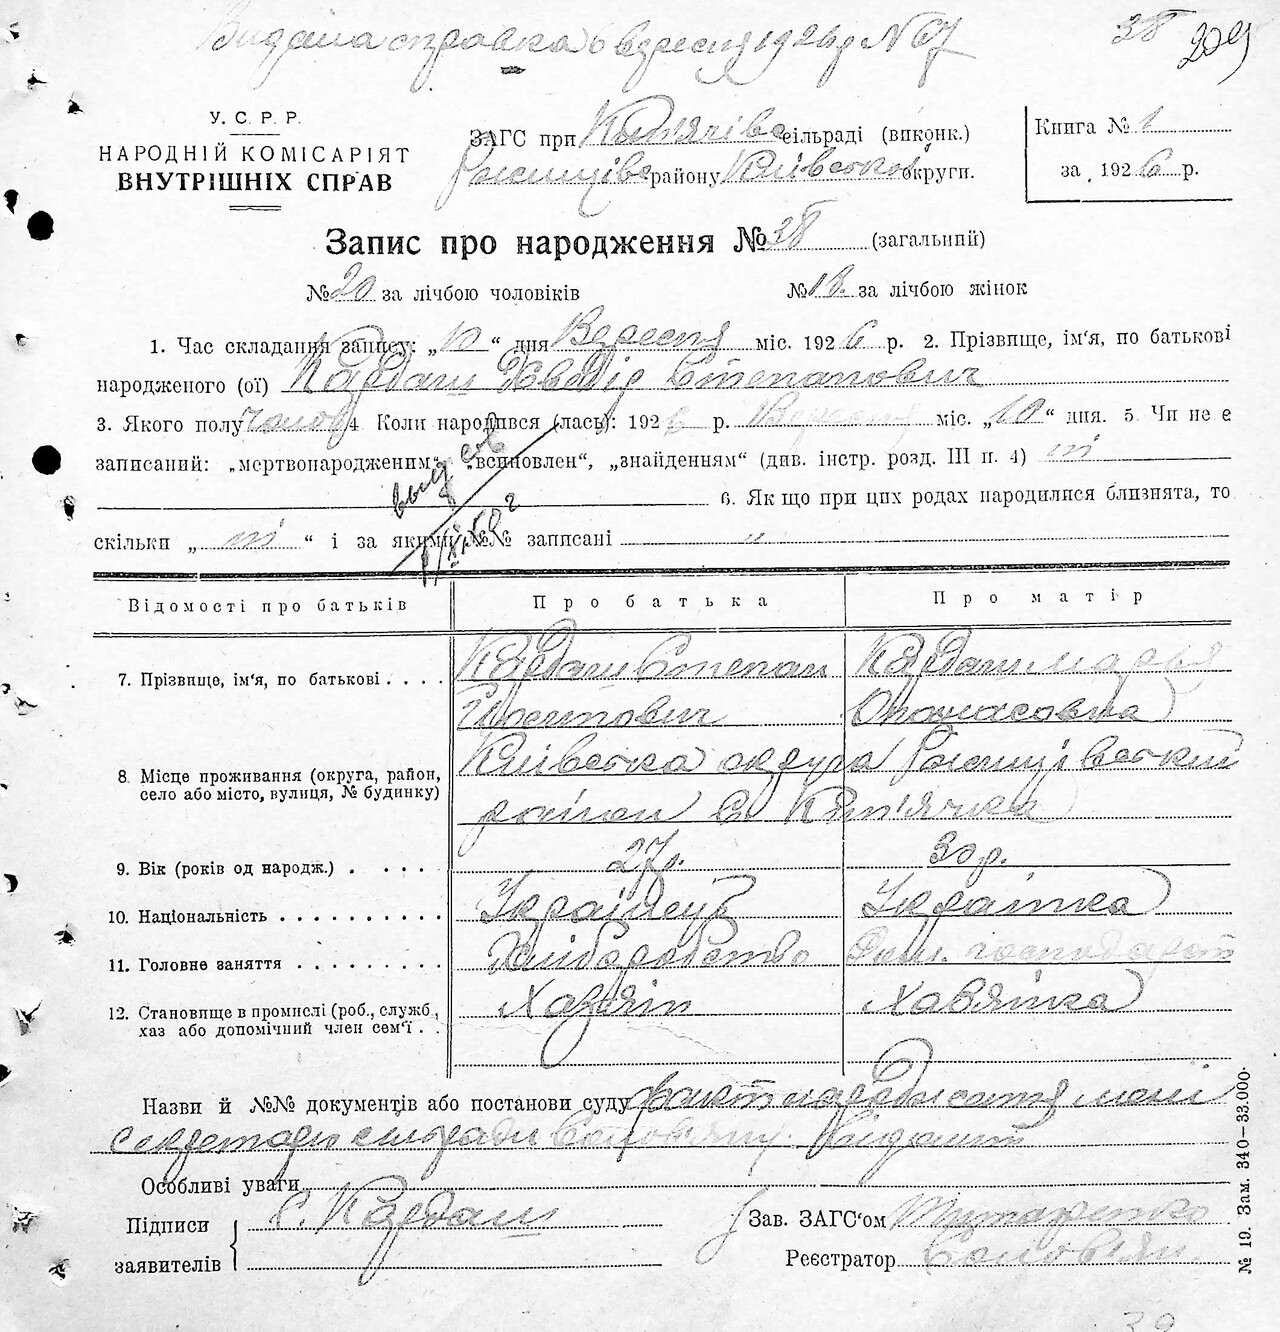 Видана справка 6 вересня 1926 р № 67
38 209
У. С. Р. Р.
НАРОДНІЙ КОМІСАРІЯТ
ВНУТРІШНІХ СПРАВ
ЗАГС при сільраді (виконк.)
району Київської округи.
Книга № 1
за 1926 р.
Запис про народження № 38 (загальний)
№ 20 за лічбою чоловіків № 18. за лічбою жінок
1. Час складання запису: „10“ дня Вересня міс. 1926 р. 2. Прізвище, ім‘я, по батькові
народженого (ої) Кардаш Степанович
3. Якого полу чолов 4. Коли народився (лась): 1926 р. Вересня міс. „10“ дня. 5. Чи не є
записаний: „мертвонародженим“, „всиновлен“, „знайденням“ (див. інстр. розд. III п. 4) ні
6. Як що при цих родах народилися близнята, то
скільки „ ні “ і за якими №№ записані „
Відомості про батьків Про батька Про матір
7. Прізвище, ім‘я, по батькові . . . . Кардаш Степан Кардаш Марья
Опанасовна
8. Місце проживання (округа, район, Київська округа
село або місто, вулиця, № будинку) район с.
9. Вік (років од народж.) . . . . . 27 р. 30 р.
10. Національність . . . . . . . . . . Українець Українка
11. Головне заняття . . . . . . . . . Хліборобство Дом. господарст
12. Становище в промислі (роб., служб., Хазяїн Хазяїнка
хаз або допомічний член сем‘ї . .
Назви й №№ документів або постанови суду
секретарь сільради
Особливі уваги
Підписи С. Кардаш Зав. ЗАГС‘ом Титаренко
заявителів Реєстратор
№ 19. Зам. 340—33.000.
39